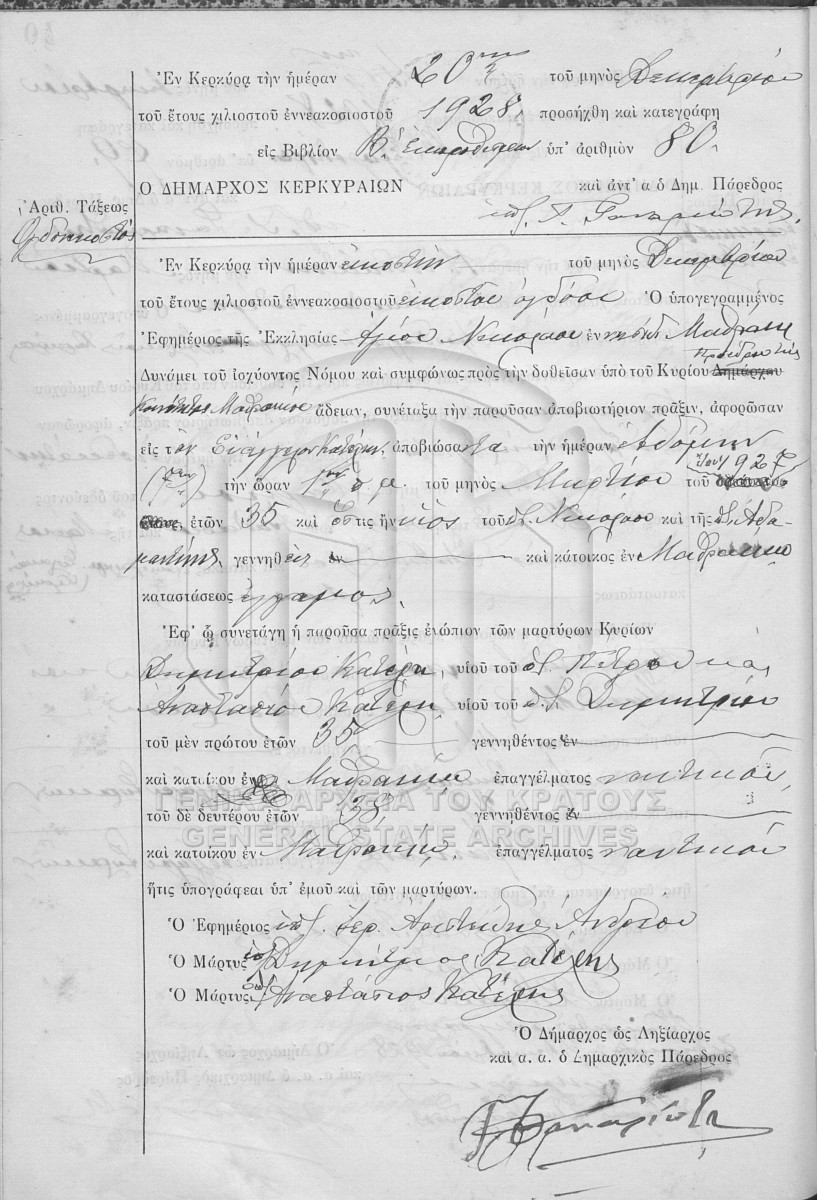 Ἐν Κερκύρᾳ τὴν ἡμέραν 20ην τοῦ μηνὸς Δεκεμβρίου
τοῦ ἔτους χιλιοστοῦ ἐννεακοσιοστοῦ 1928. προσήχθη καὶ κατεγράφη
εἰς Βιβλίον Β. ὑπ' ἀριθμὸν 80.
Ὁ ΔΗΜΑΡΧΟΣ ΚΕΡΚΥΡΑΙΩΝ καὶ ἀντ' α ὁ Δημ. Πάρεδρος
Ἀριθ. Τάξεως
Ὀγδοηκοστός
Ἐν Κερκύρᾳ τὴν ἡμέραν εἰκοστὴν τοῦ μηνὸς Δεκεμβρίου
τοῦ ἔτους χιλιοστοῦ ἐννεακοσιοστοῦ εἰκοστοῦ ὀγδόου Ὁ ὑπογεγραμμένος
Ἐφημέριος τῆς Ἐκκλησίας Ἁγίου Νικολάου ἐν νήσῳ Μαθράκι
Προέδρου τῆς
Δυνάμει τοῦ ἰσχύοντος Νόμου καὶ συμφώνως πρὸς τὴν δοθεῖσαν ὑπὸ τοῦ Κυρίου Δημάρχου
Κοινότητος Μαθρακίου ἄδειαν, συνέταξα τὴν παροῦσαν ἀποβιωτήριον πρᾶξιν, ἀφορῶσαν
εἰς τὸν Εὐάγγελον Κατέχη, ἀποβιώσαντα τὴν ἡμέραν ἑβδόμην
(7ην) τὴν ὥραν 1ην π.μ. τοῦ μηνὸς Μαρτίου τοῦ 1927
ἐτῶν 35 καὶ ὅστις ἦν υἱὸς τοῦ Νικολάου καὶ τῆς Ἀδα-
μαντίνης, γεννηθεὶς ἐν καὶ κάτοικος ἐν Μαθρακίῳ
καταστάσεως ἔγγαμος.
Ἐφ' ᾧ συνετάγη ἡ παροῦσα πρᾶξις ἐνώπιον τῶν μαρτύρων Κυρίων
Δημητρίου Κατέχη, υἱοῦ τοῦ Πέτρου καὶ
Ἀναστασίου Κατέχη, υἱοῦ τοῦ Δημητρίου
τοῦ μὲν πρώτου ἐτῶν 35 γεννηθέντος ἐν
καὶ κατοίκου ἐν Μαθρακίῳ ἐπαγγέλματος ναυτικοῦ,
ΓΕΝΙΚΑ ΑΡΧΕΙΑ ΤΟΥ ΚΡΑΤΟΥΣ
τοῦ δὲ δευτέρου ἐτῶν 38, γεννηθέντος ἐν
GENERAL STATE ARCHIVES
καὶ κατοίκου ἐν Μαθρακίῳ, ἐπαγγέλματος ναυτικοῦ
ἥτις ὑπογράφεται ὑπ' ἐμοῦ καὶ τῶν μαρτύρων.
Ὁ Ἐφημέριος ὑπ. ἱερ. Ἀριστείδης Ἀνδρέου
Ὁ Μάρτυς ὑπ. Δημήτριος Κατέχης
Ὁ Μάρτυς ὑπ. Ἀναστάσιος Κατέχης
Ὁ Δήμαρχος ὡς Ληξίαρχος
καὶ α. α. ὁ Δημαρχικὸς Πάρεδρος